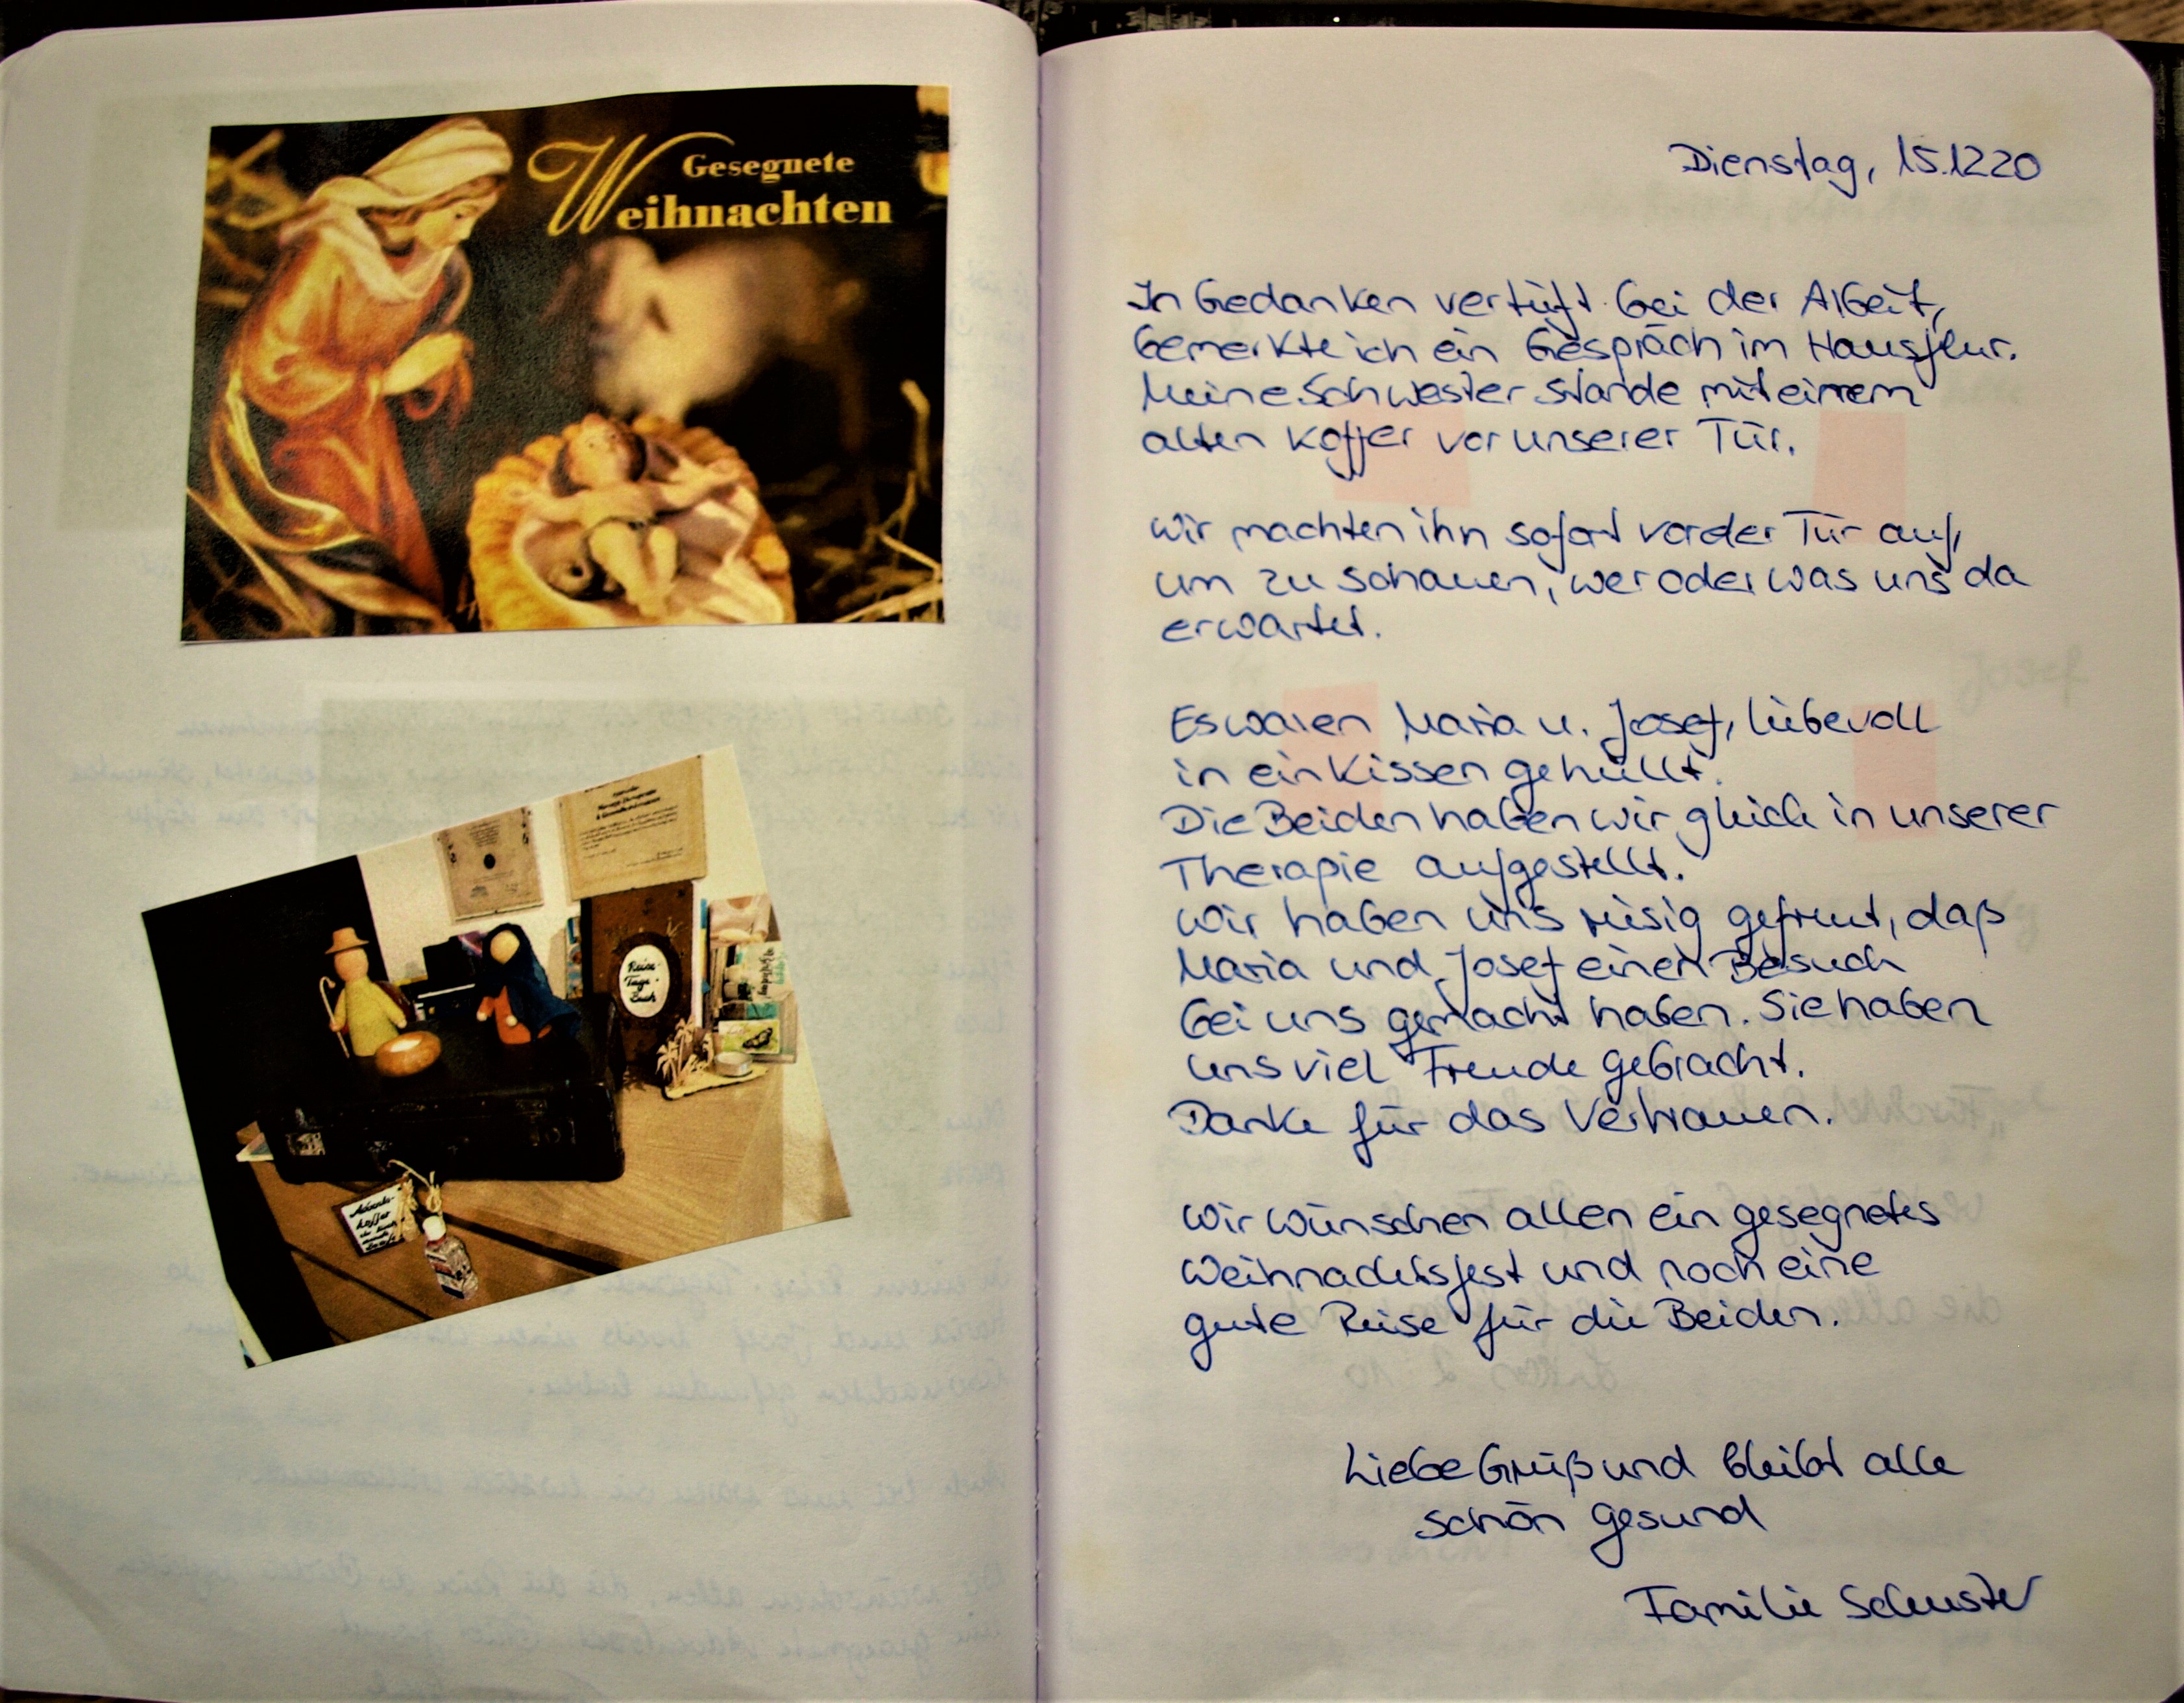 Gesegnete
Weihnachten
Reise-
Tage-
buch
Advents-
koffer
Dienstag, 15.12.20
In Gedanken vertieft bei der Arbeit,
bemerkte ich ein Gespräch im Hausflur.
Meine Schwester stande mit einem
alten Koffer vor unserer Tür.
Wir machten ihn sofort vor der Tür auf,
um zu schauen, wer oder was uns da
erwartet.
Es waren Maria u. Josef, liebevoll
in ein Kissen gehüllt.
Die Beiden haben wir gleich in unserer
Therapie aufgestellt.
Wir haben uns riesig gefreut, daß
Maria und Josef einen Besuch
bei uns gemacht haben. Sie haben
uns viel Freude gebracht.
Danke für das Vertrauen.
Wir wünschen allen ein gesegnetes
Weihnachtsfest und noch eine
gute Reise für die Beiden.
Liebe Grüß und bleibt alle
schön gesund
Familie Schuster